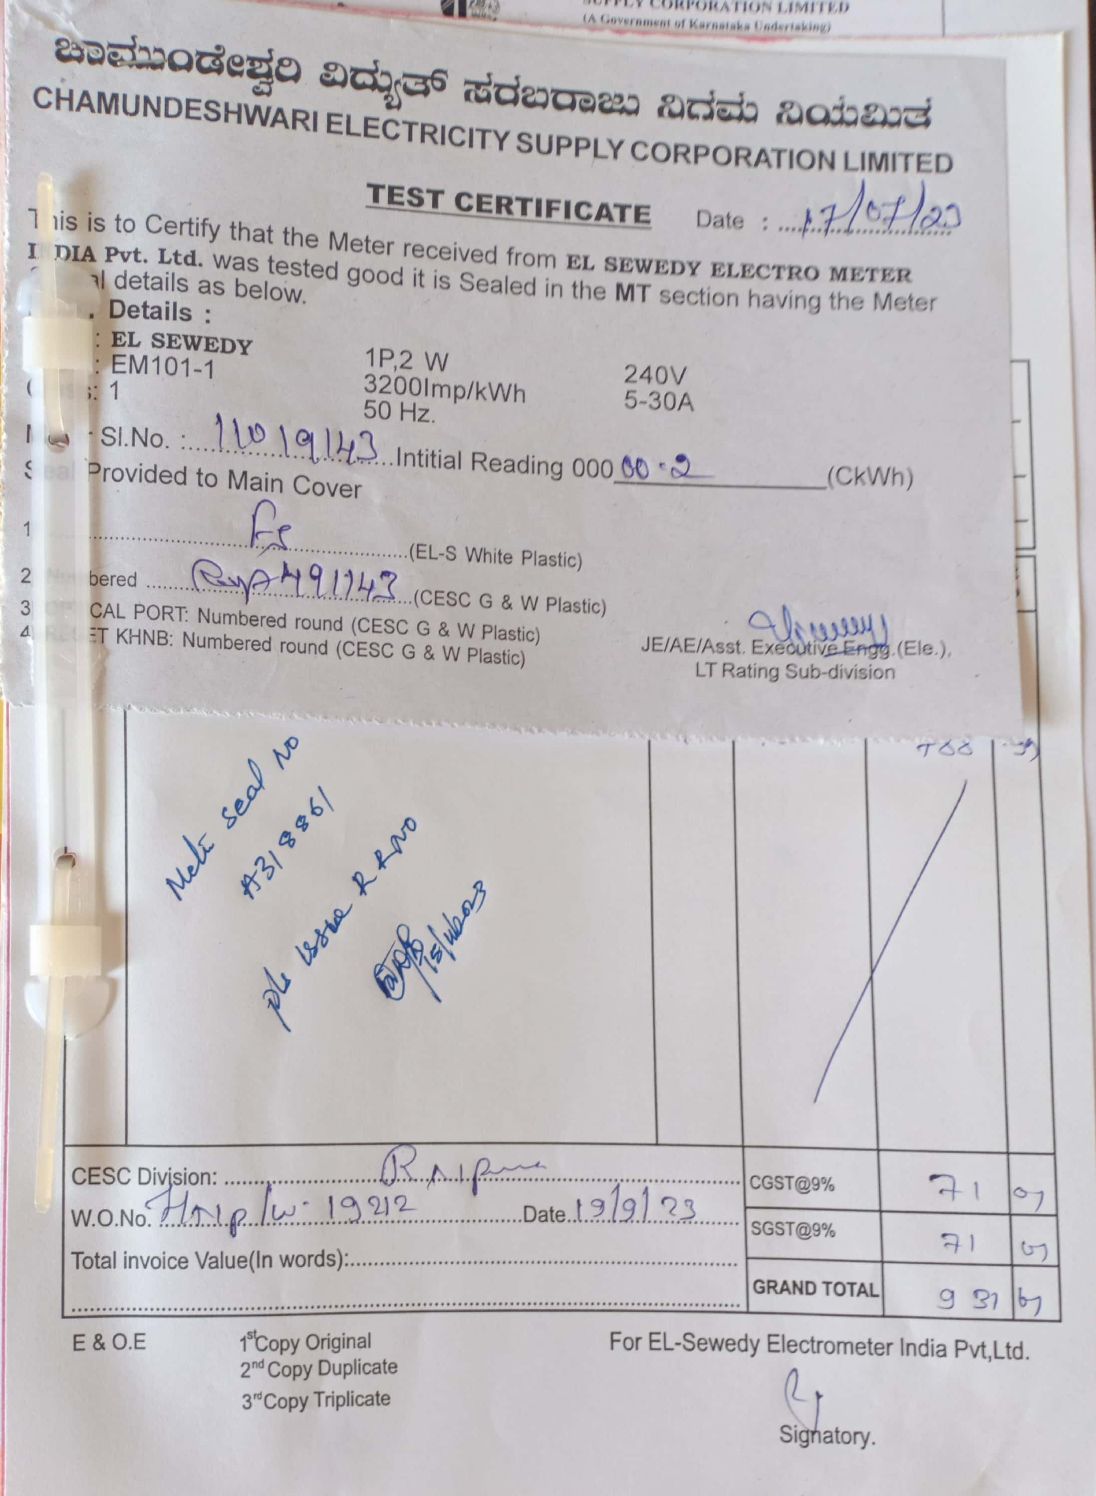 SUPPLY CORPORATION LIMITED
(A Government of Karnataka Undertaking)
ಚಾಮುಂಡೇಶ್ವರಿ ವಿದ್ಯುತ್ ಸರಬರಾಜು ನಿಗಮ ನಿಯಮಿತ
CHAMUNDESHWARI ELECTRICITY SUPPLY CORPORATION LIMITED
TEST CERTIFICATE Date : 17/07/23
This is to Certify that the Meter received from EL SEWEDY ELECTRO METER
INDIA Pvt. Ltd. was tested good it is Sealed in the MT section having the Meter
details as below.
Details :
: EL SEWEDY
: EM101-1 1P,2 W 240V
: 1 3200Imp/kWh 5-30A
50 Hz.
Sl.No. : 11019143 Intitial Reading 000 00.2 (CkWh)
Seal Provided to Main Cover
1 (EL-S White Plastic)
2 491143 (CESC G & W Plastic)
3 CAL PORT: Numbered round (CESC G & W Plastic)
4 KHNB: Numbered round (CESC G & W Plastic)
JE/AE/Asst. Executive Engg.(Ele.),
LT Rating Sub-division
seal no
A318861
issue R R no
CESC Division:
W.O.No. 19212 Date 19/9/23
Total invoice Value(In words):
CGST@9% 71
SGST@9% 71
GRAND TOTAL 931
E & O.E
1st Copy Original
2nd Copy Duplicate
3rd Copy Triplicate
For EL-Sewedy Electrometer India Pvt,Ltd.
Signatory.